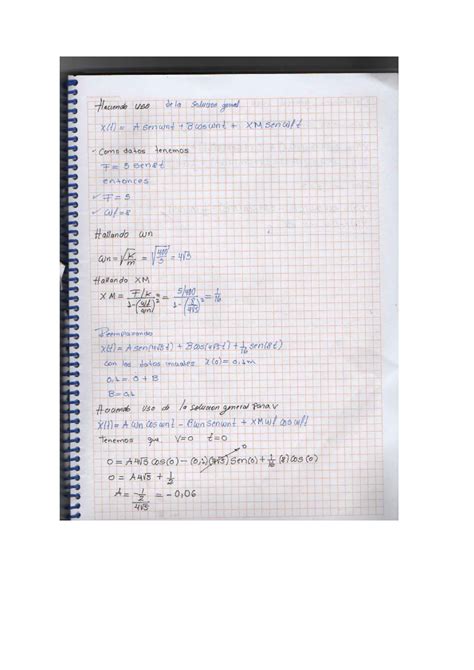 Haciendo uso de la solucion general
X(t) = A senωnt + Bcosωnt + XM senωft
- Como datos tenemos
F = 5 sen8t
entonces
✓ F = 5
✓ ωf = 8
Hallando ωn
ωn = √(k/m) = = 4√3
Hallando XM
XM = (F/k)/(1-(ωf/ωn)²) = = 1/16
Reemplazando
X(t) = A sen(4√3t) + Bcos(4√3t) + 1/16 sen(8t)
con los datos iniciales X(0) = 0,1m
0,1 = 0 + B
B = 0,1
Haciendo uso de la solucion general para v
X(t) = Aωn cosωnt - Bωn senωnt + XMωf cosωft
tenemos que V=0 t=0
0 = A4√3 cos(0) - (0,1)(4√3) sen(0) + 1/16 (8) cos(0) 0
0 = A4√3 + 1/2
A = (-1/2)/(4√3) = -0,06